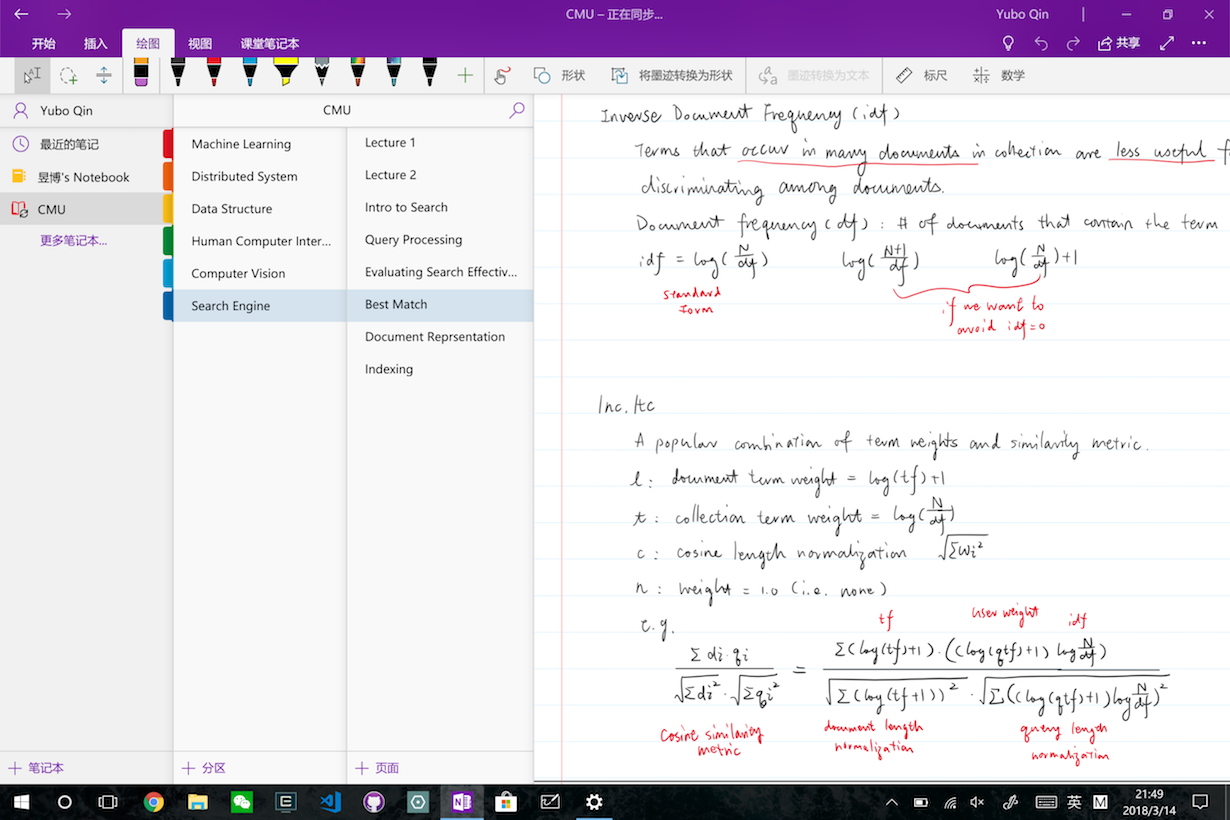 CMU – 正在同步...
Yubo Qin
开始 插入 绘图 视图 课堂笔记本
共享
形状 将墨迹转换为形状 墨迹转换为文本 标尺 数学
Yubo Qin
最近的笔记
昱博's Notebook
CMU
更多笔记本...
CMU
Machine Learning
Distributed System
Data Structure
Human Computer Inter...
Computer Vision
Search Engine
Lecture 1
Lecture 2
Intro to Search
Query Processing
Evaluating Search Effectiv...
Best Match
Document Reprsentation
Indexing
Inverse Document Frequency (idf)
Terms that occur in many documents in collection are less useful f
discriminating among documents.
Document frequency (df) : # of documents that contain the term
idf = log(N/df) log(N+1/df) log(N/df)+1
standard
form
if we want to
avoid idf=0
lnc.ltc
A popular combination of term weights and similarity metric.
l : document term weight = log(tf)+1
t : collection term weight = log(N/df)
c : cosine length normalization √Σwi²
n : weight = 1.0 (i.e. none)
e.g.
tf user weight idf
Σdi·qi / √Σdi² · √Σqi² = Σ(log(tf)+1)·((log(qtf)+1) log N/df) / √Σ(log(tf+1))² · √Σ((log(qtf)+1)log N/df)²
cosine similarity
metric
document length
normalization
query length
normalization
笔记本
分区
页面
英
21:49
2018/3/14